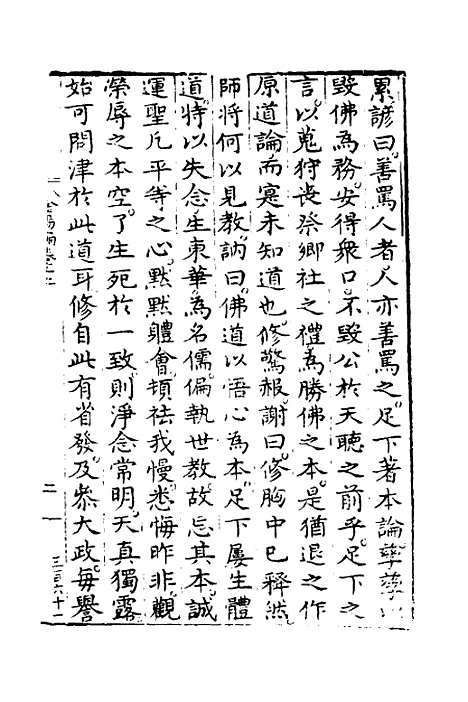 累諺曰善罵人者人亦善罵之足下著本論孳孳以
毀佛為務安得眾口不毀公於天聽之前乎足下之
言以蒐狩喪祭鄉社之禮為勝佛之本是猶退之作
原道論而寔未知道也修驚赧謝曰修胸中已釋然
師將何以見教訥曰佛道以悟心為本足下屢生體
道特以失念生東華為名儒偏執世教故忘其本誠
運聖凡平等之心默默體會頓祛我慢悉悔昨非觀
榮辱之本空了生死於一致則淨念常明天真獨露
始可問津於此道耳修自此有省發及參大政每譽
二
三百六十一